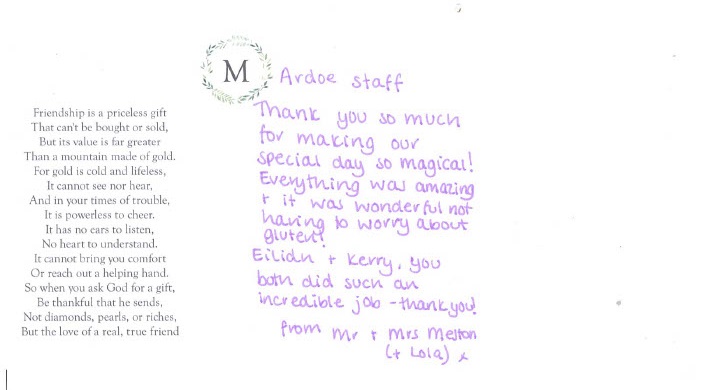 Friendship is a priceless gift
That can't be bought or sold,
But its value is far greater
Than a mountain made of gold.
For gold is cold and lifeless,
It cannot see nor hear,
And in your times of trouble,
It is powerless to cheer.
It has no ears to listen,
No heart to understand.
It cannot bring you comfort
Or reach out a helping hand.
So when you ask God for a gift,
Be thankful that he sends,
Not diamonds, pearls, or riches,
But the love of a real, true friend
M
Ardoe staff
Thank you so much
for making our
special day so magical!
Everything was amazing
+ it was wonderful not
having to worry about
gluten!
Eilidh + Kerry, you
both did such an
incredible job - thank you!
From Mr + Mrs Melton
(+ Lola) x